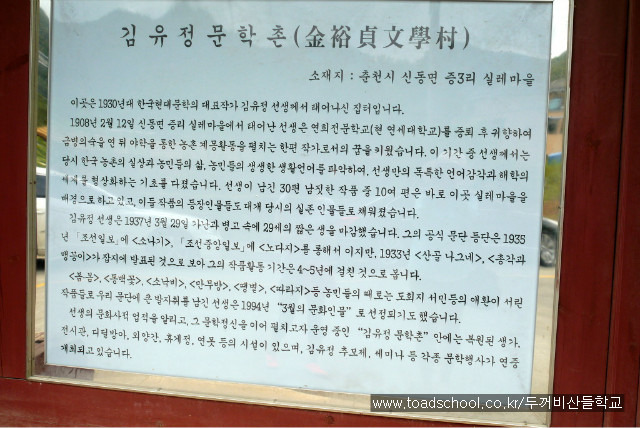 김유정문학촌(金裕貞文學村)
소재지 : 춘천시 신동면 증3리 실레마을
이곳은 1930년대 한국현대문학의 대표작가 김유정 선생께서 태어나신 집터입니다.
1908년 2월 12일 신동면 증리 실레마을에서 태어난 선생은 연희전문학교(현 연세대학교)를 중퇴 후 귀향하여
금병의숙을 연 뒤 야학을 통한 농촌 계몽활동을 펼치는 한편 작가로서의 꿈을 키웠습니다. 이 기간 중 선생께서는
당시 한국 농촌의 실상과 농민들의 삶, 농민들의 생생한 생활언어를 파악하여, 선생만의 독특한 언어감각과 해학의
세계를 형상화하는 기초를 다졌습니다. 선생이 남긴 30편 남짓한 작품 중 10여 편은 바로 이곳 실레마을을
배경으로 하고 있고, 이들 작품의 등장인물들도 대개 당시의 실존 인물들로 채워졌습니다.
김유정 선생은 1937년 3월 29일 가난과 병고 속에 29세의 짧은 생을 마감했습니다. 그의 공식 문단 등단은 1935
년 「조선일보」에 <소낙비>, 「조선중앙일보」에 <노다지>를 통해서 이지만, 1933년 <산골 나그네>, <총각과
맹꽁이>가 잡지에 발표된 것으로 보아 그의 작품활동 기간은 4~5년에 걸친 것으로 봅니다.
<봄·봄>, <동백꽃>, <소낙비>, <만무방>, <땡볕>, <따라지>등 농민들의 때로는 도회지 서민들의 애환이 서린
작품들로 우리 문단에 큰 발자취를 남긴 선생은 1994년 "3월의 문화인물" 로 선정되기도 했습니다.
선생의 문학사적 업적을 알리고, 그 문학정신을 이어 펼치고자 운영 중인 "김유정 문학촌" 안에는 복원된 생가,
전시관, 디딜방아, 외양간, 휴게정, 연못 등의 시설이 있으며, 김유정 추모제, 세미나 등 각종 문학행사가 연중
개최되고 있습니다.
www.toadschool.co.kr/두꺼비산들학교